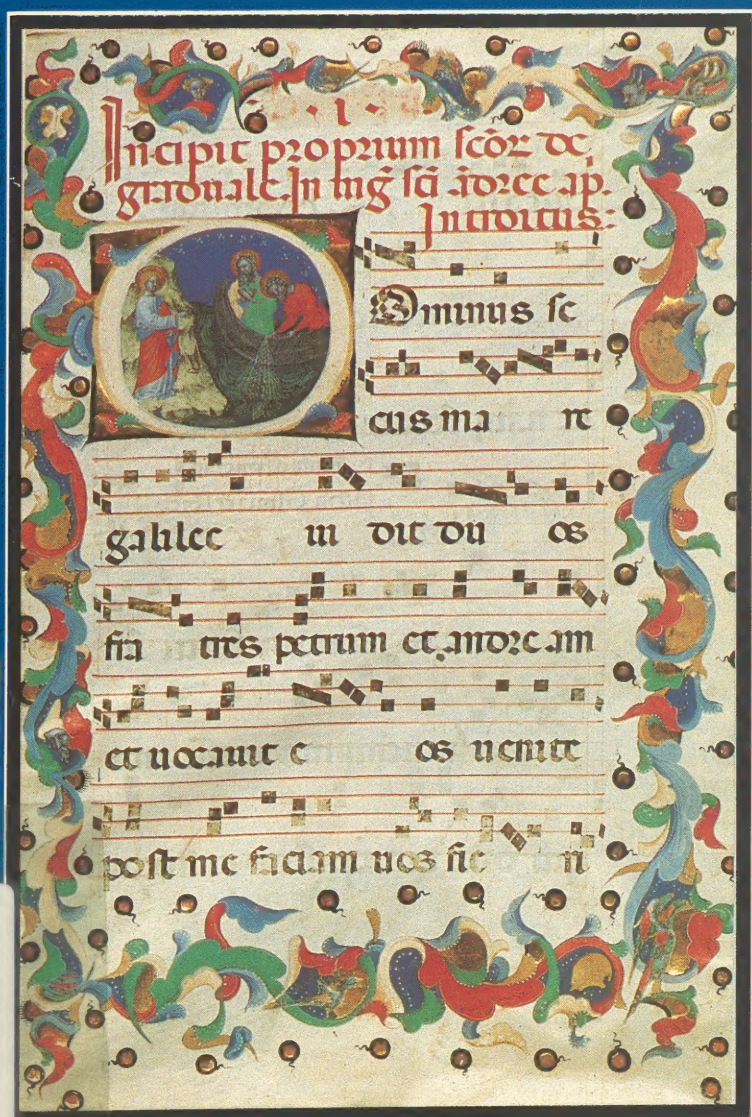 · I ·
Incipit proprium scoꝝ de
graduale. In uigͣ sci ādree ap̄.
Introitus:
Ominus se
cus ma re
galilee ui dit du os
fra tres petrum et andream
et uocauit e os uenite
post me faciam uos fie ri